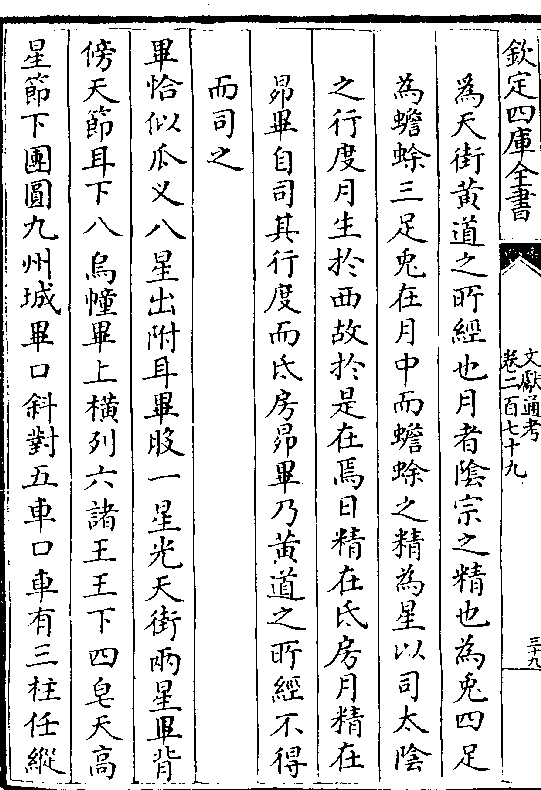 欽定四庫全書
文獻通考
卷二百七十九
三十九
為天街黄道之所經也月者陰宗之精也為兎四足
為蟾蜍三足兎在月中而蟾蜍之精為星以司太陰
之行度月生於西故於是在焉日精在氐房月精在
昴畢自司其行度而氐房昴畢乃黄道之所經不得
而司之
畢恰似爪义八星出附耳畢股一星光天街兩星畢背
傍天節耳下八烏幢畢上横列六諸王王下四皂天高
星節下團圓九州城畢口斜對五車口車有三柱任縱